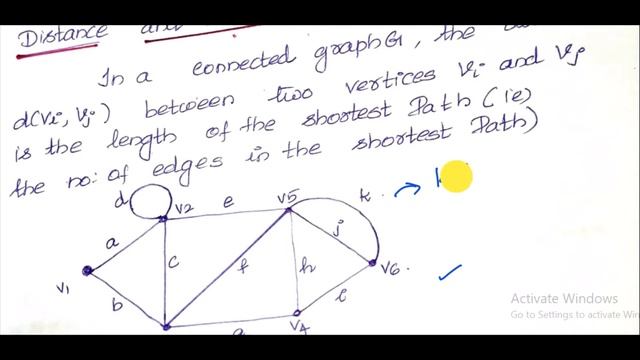 Distance and
In a connected graph G, the
d(vi, vj) between two vertices vi and vj
is the length of the shortest Path (ie)
the no: of edges in the shortest Path)
d v2 e v5 k
a c f j
v1 h v6
b l
v4
g
Activate Windows
Go to Settings to activate Win